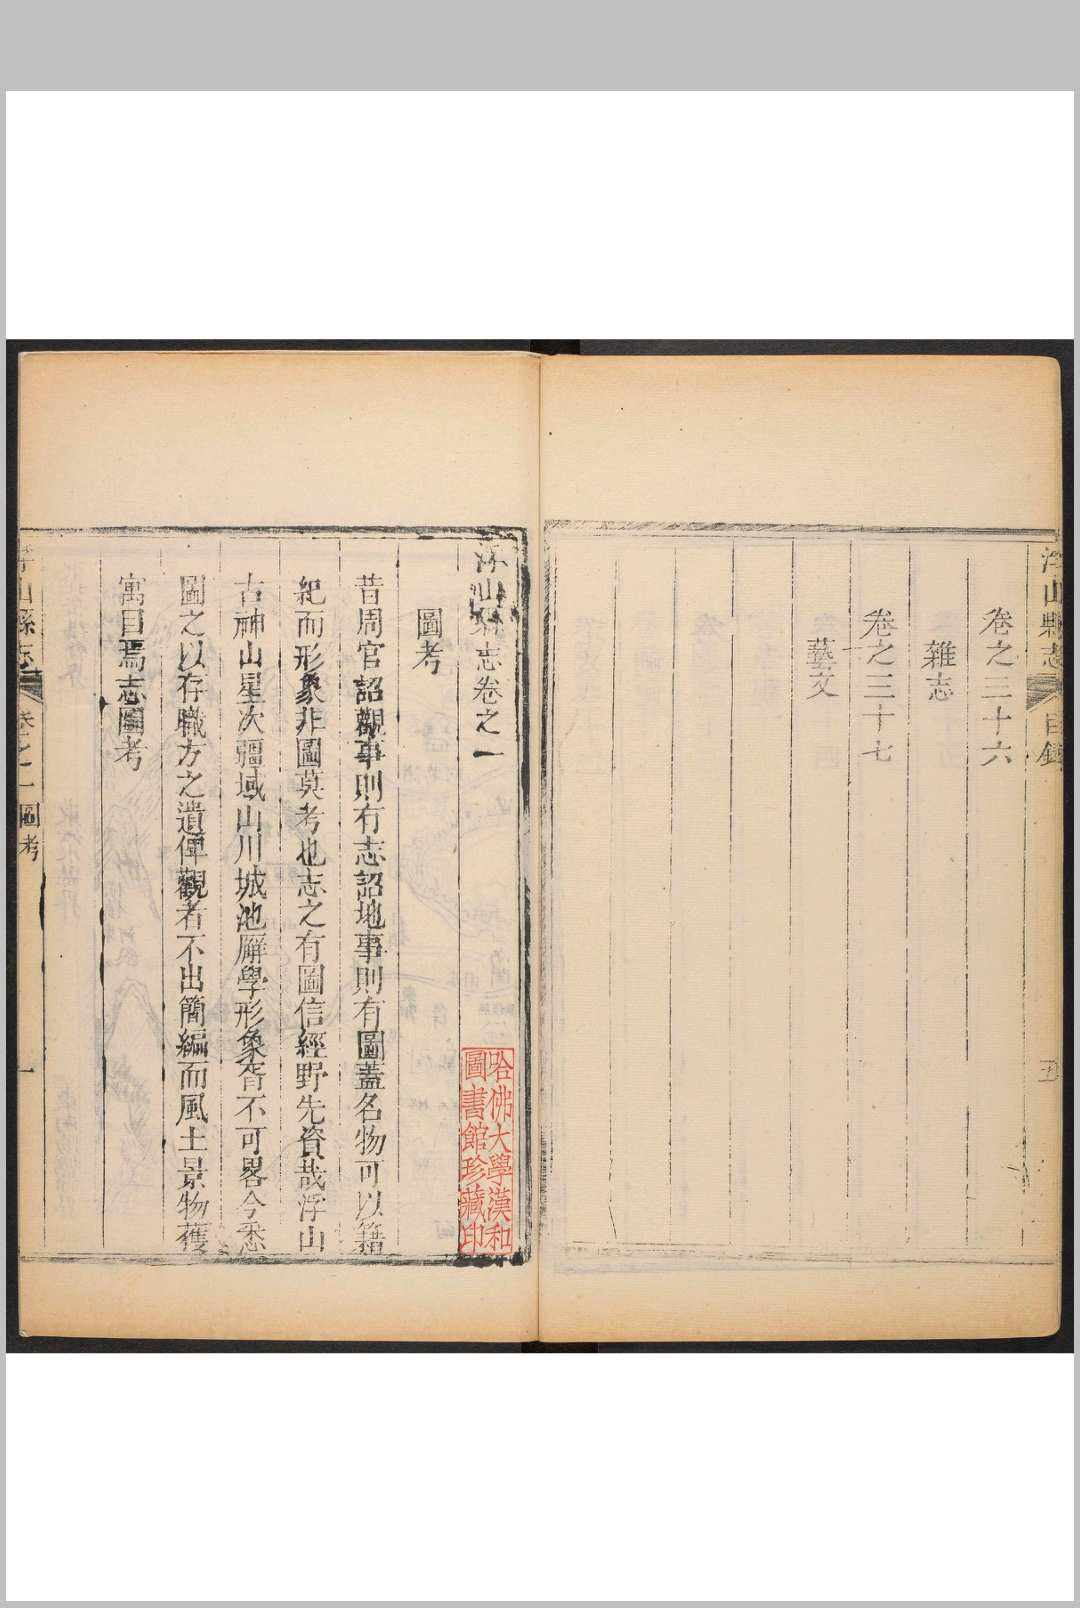 浮山縣志
目錄
卷之三十六
雜志
卷之三十七
藝文
五
浮山縣志卷之一
圖考
昔周官詔觀事則有志詔地事則有圖蓋名物可以籍
紀而形象非圖莫考也志之有圖信經野先資哉浮山
古神山星次疆域山川城池廨學形象胥不可畧今悉
圖之以存職方之遺俾觀者不出簡編而風土景物獲
寓目焉志圖考
浮山縣志
卷之一
圖考
一
哈佛大學漢和
圖書館珍藏印